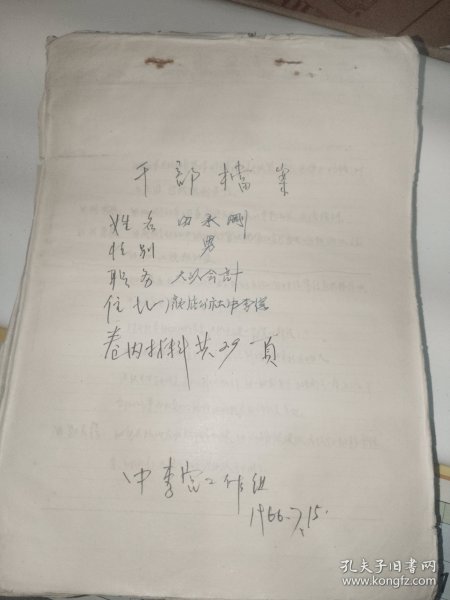 干部檔案
姓名 田承刚
性别 男
职务 大队会計
住址
卷内材料共29頁
中李宫工作组
1966.7.15.
孔夫子旧书网
www.kongfz.com